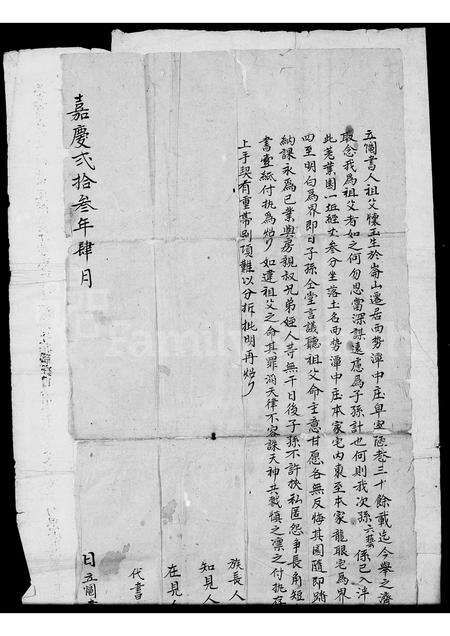 立鬮書人祖父懷玉生於崙山遷居西勢潭中庄卑室陋巷三十餘載迄今舉之濟
敢念我為祖父者如之何勿思當深謀遠慮為子孫計也何則我次孫六藝係已入泮
此荖葉園一坵經丈叁分坐落土名西勢潭中庄本家宅內東至本家龍眼宅為界
四至明白為界即日子孫仝堂言議聽祖父命主意甘愿各無反悔其園隨即踏
納課永為己業與房親叔兄弟姪人等無干日後子孫不許挾私匿怨爭長角短
書壹紙付执為炤如違祖父之命其罪滔天律不容誅天神共戮慎之凜之付执存
上手契有重帶別項難以分拆批明再炤
族長人
知見人
在見人
代書
嘉慶弍拾叁年肆月
日立鬮